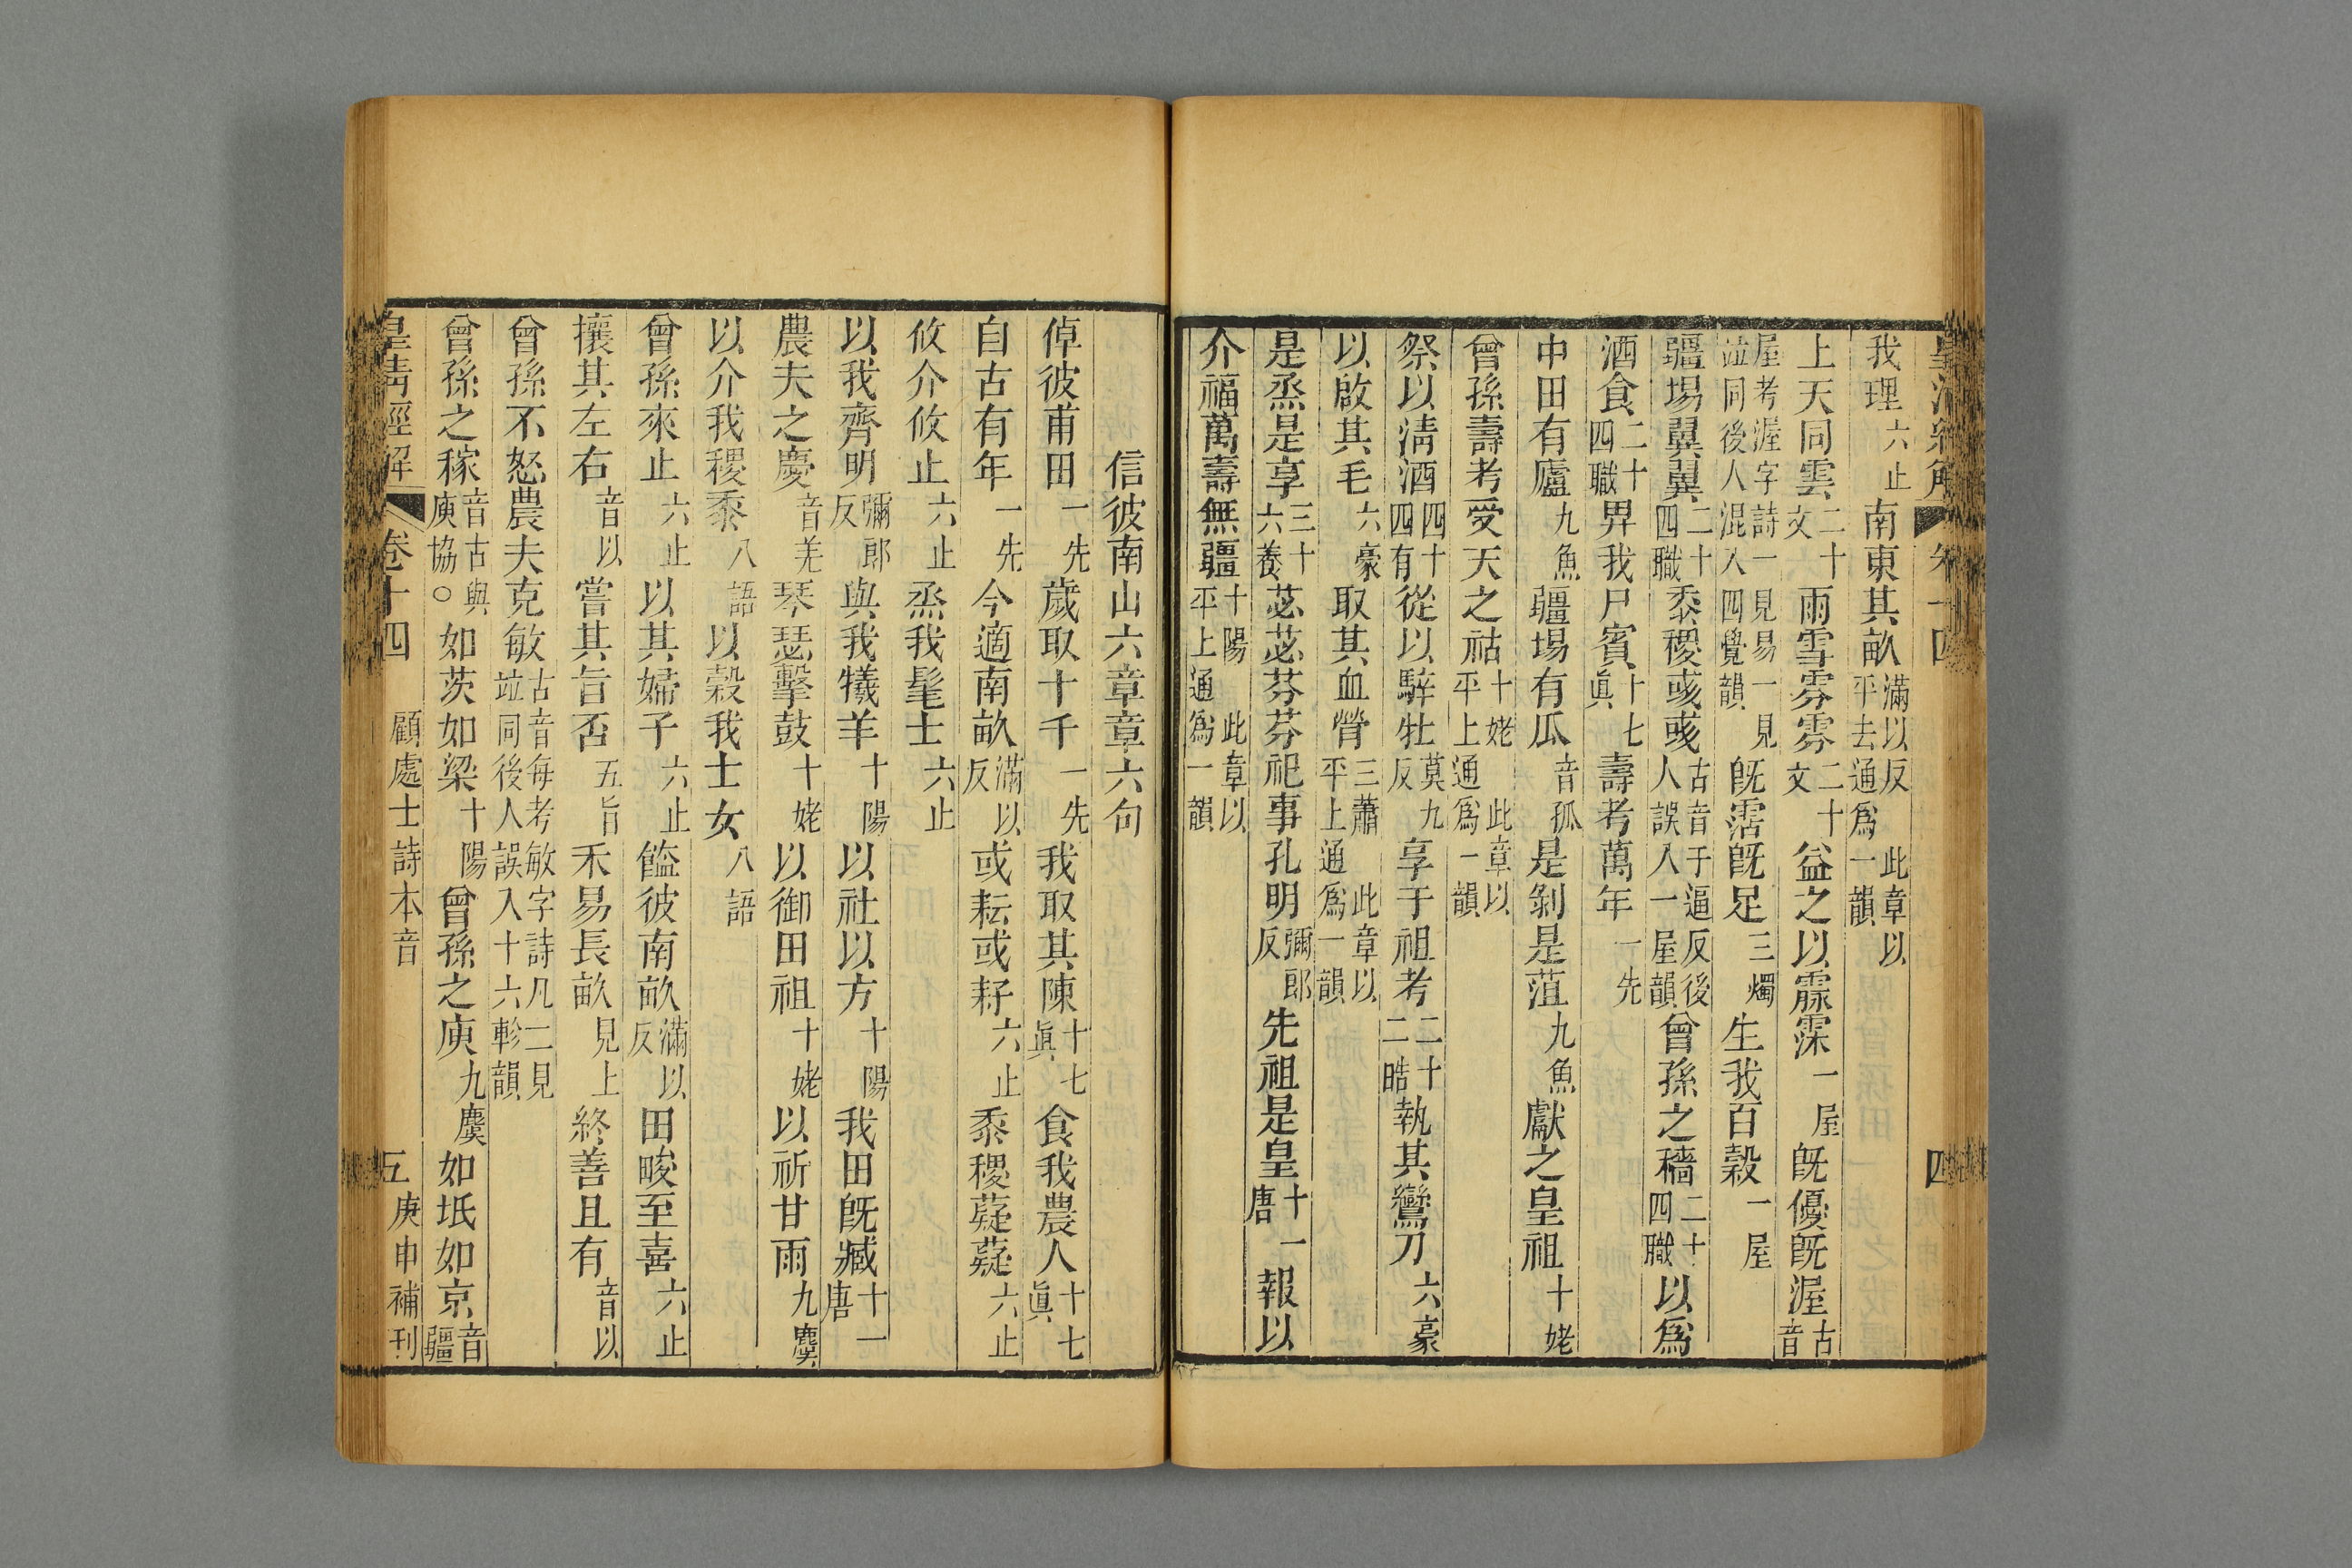 皇清經解 卷十四 四
我理六止南東其畝滿以反平去通爲一韻此章以
上天同雲二十文雨雪雰雰二十文益之以霡霂一屋旣優旣渥古音
屋考渥字詩一見易一見竝同後人混入四覺韻旣霑旣足三燭生我百穀一屋
疆埸翼翼二十四職黍稷彧彧古音于逼反後人誤入一屋韻曾孫之穡二十四職以爲
酒食二十四職畀我尸賓十七眞壽考萬年一先
中田有廬九魚疆埸有瓜音孤是剝是菹九魚獻之皇祖十姥
曾孫壽考受天之祜十姥此章以平上通爲一韻
祭以淸酒四十四有從以騂牡莫九反享于祖考二十二晧執其鸞刀六豪
以啟其毛六豪取其血膋三蕭此章以平上通爲一韻
是烝是享三十六養苾苾芬芬祀事孔明彌郎反先祖是皇十一唐報以
介福萬壽無疆十陽此章以平上通爲一韻
信彼南山六章章六句
倬彼甫田一先歲取十千一先我取其陳十七眞食我農人十七眞
自古有年一先今適南畝滿以反或耘或耔六止黍稷薿薿六止
攸介攸止六止烝我髦士六止
以我齊明彌郎反與我犧羊十陽以社以方十陽我田旣臧十一唐
農夫之慶音羌琴瑟擊鼓十姥以御田祖十姥以祈甘雨九麌
以介我稷黍八語以穀我士女八語
曾孫來止六止以其婦子六止饁彼南畝滿以反田畯至喜六止
攘其左右音以嘗其旨否五旨禾易長畝見上終善且有音以
曾孫不怒農夫克敏古音每考敏字詩凡二見竝同後人誤入十六軫韻
曾孫之稼音古與庾協○如茨如梁十陽曾孫之庾九麌如坻如京音疆
皇清經解 卷十四 顧處士詩本音 五 庚申補刊